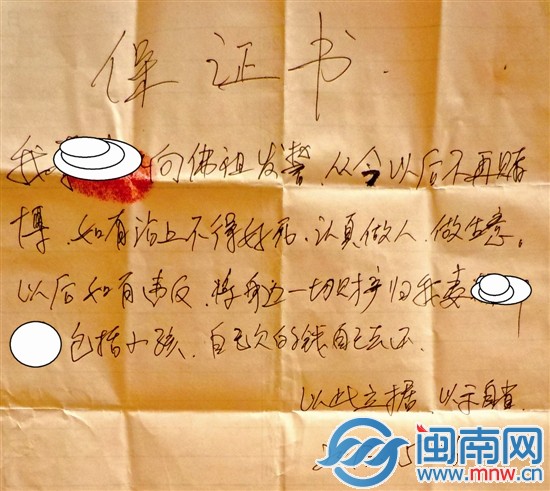 保证书.
我 向佛祖发誓,从今以后不再赌
博.如有沾上不得好死,认真做人.做生意。
以后如有违反,将身边一切财产归我妻
包括小孩.自己欠的钱自己去还.
以此立据,以示自省.
闽南网
www.mnw.cn